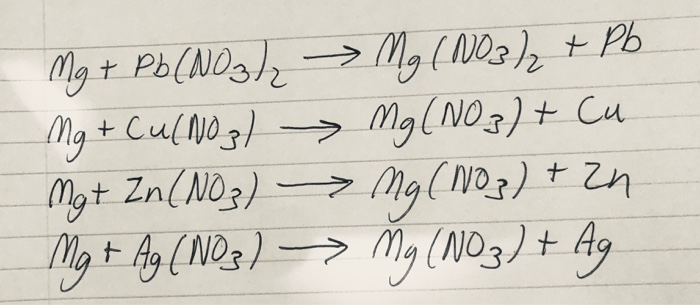 Mg + Pb(NO3)2 → Mg(NO3)2 + Pb
Mg + Cu(NO3) → Mg(NO3) + Cu
Mg + Zn(NO3) → Mg(NO3) + Zn
Mg + Ag(NO3) → Mg(NO3) + Ag